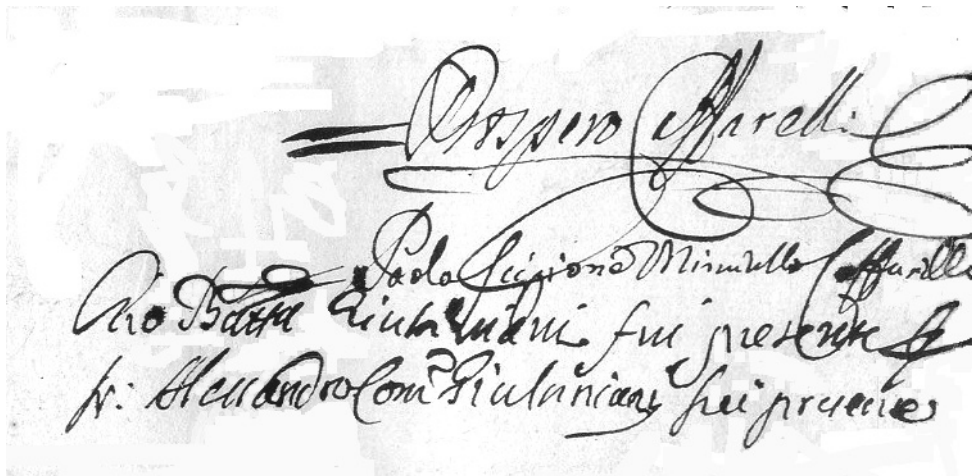 Prospero Caffarelli
Paolo Scipione Minutillo Caffarelli
Gio Batta Giustiniani fui presente
fr: Alessandro Com.^e Giustiniani fui presente